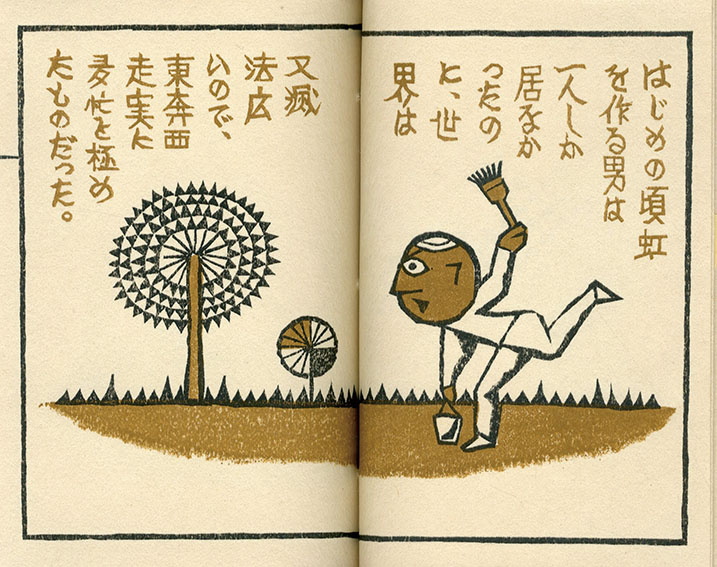 はじめの頃虹
を作る男は
一人しか
居なか
ったの
に、世
界は
又滅
法広
いので、
東奔西
走実に
多忙を極め
たものだった。